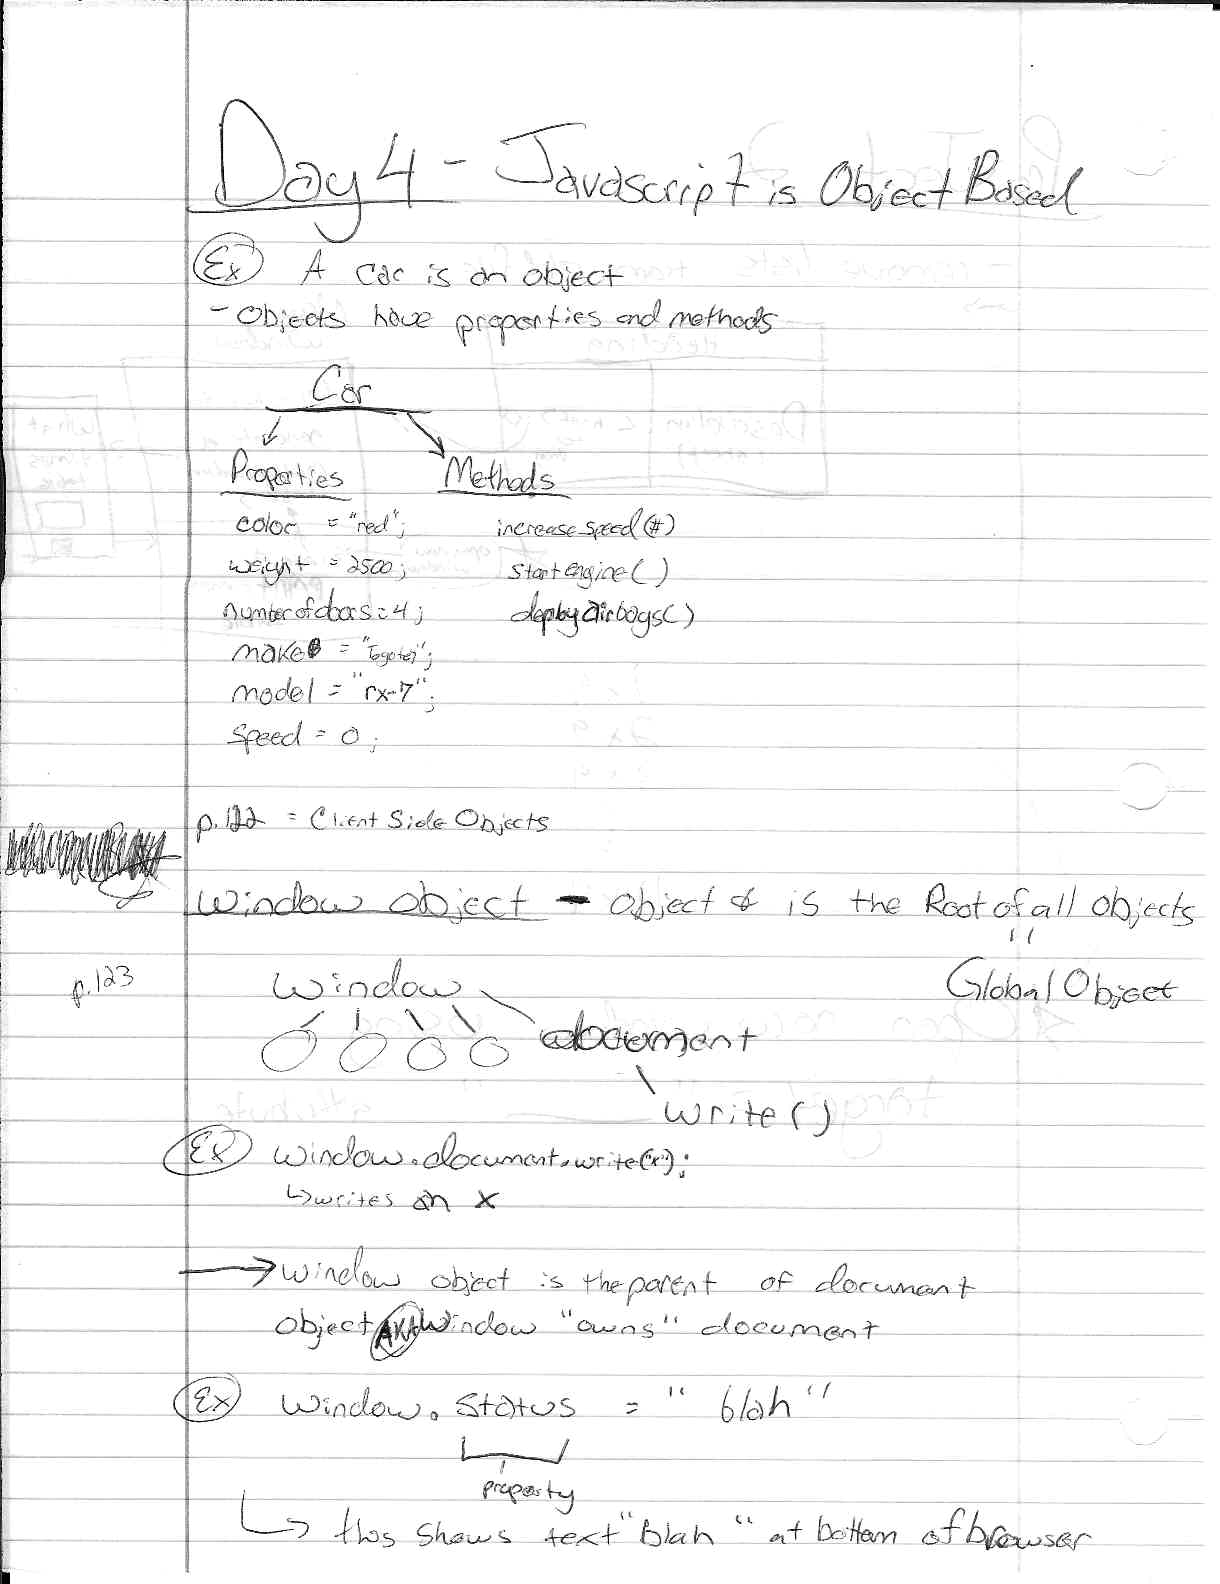 Day 4 - Javascript is Object Based
Ex A car is an object
- Objects have properties and methods
Car
Properties Methods
color = "red"; increasespeed(#)
weight = 2500; startengine()
numberofdoors=4; deployairbags()
make = "Toyota";
model = "rx-7";
speed = 0;
p.122 = Client Side Objects
Window object - object is the Root of all objects
" Global Object
p.123 Window
document
write()
Ex window.document.write("x");
↳ writes an x
→ window object is the parent of document
object AKA Window "owns" document
Ex window.status = "blah"
property
↳ this shows text "Blah" at bottom of browser